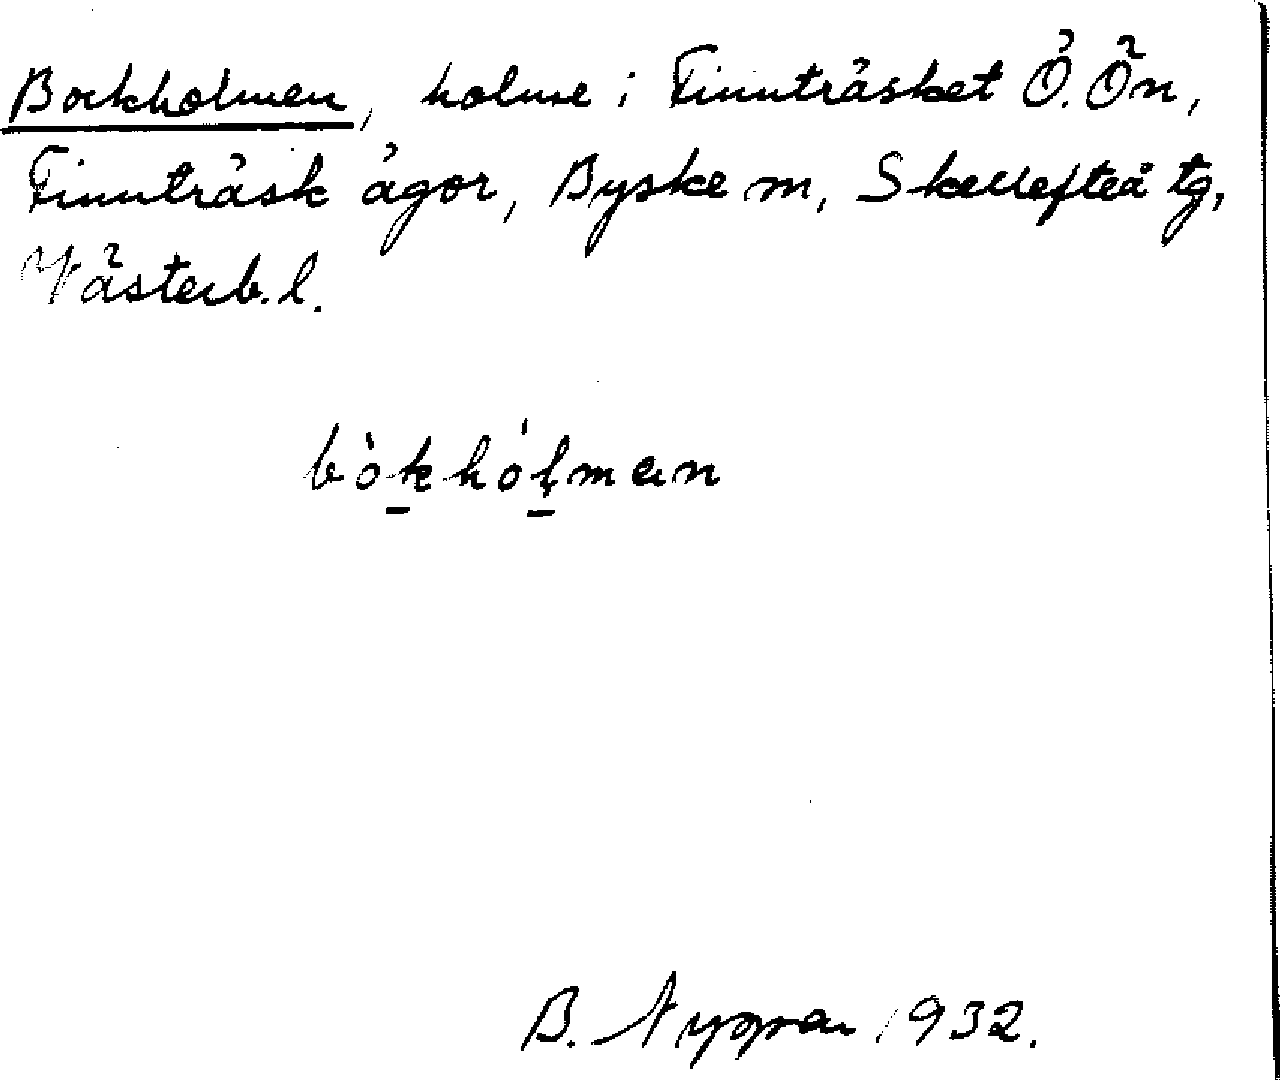 Bockholmen, holme i Finnträsket Ö. Ön,
Finnträsk ägor, Byske sn, Skellefteå tg,
Västerb. l.
bòkhólmen
B. 1932.